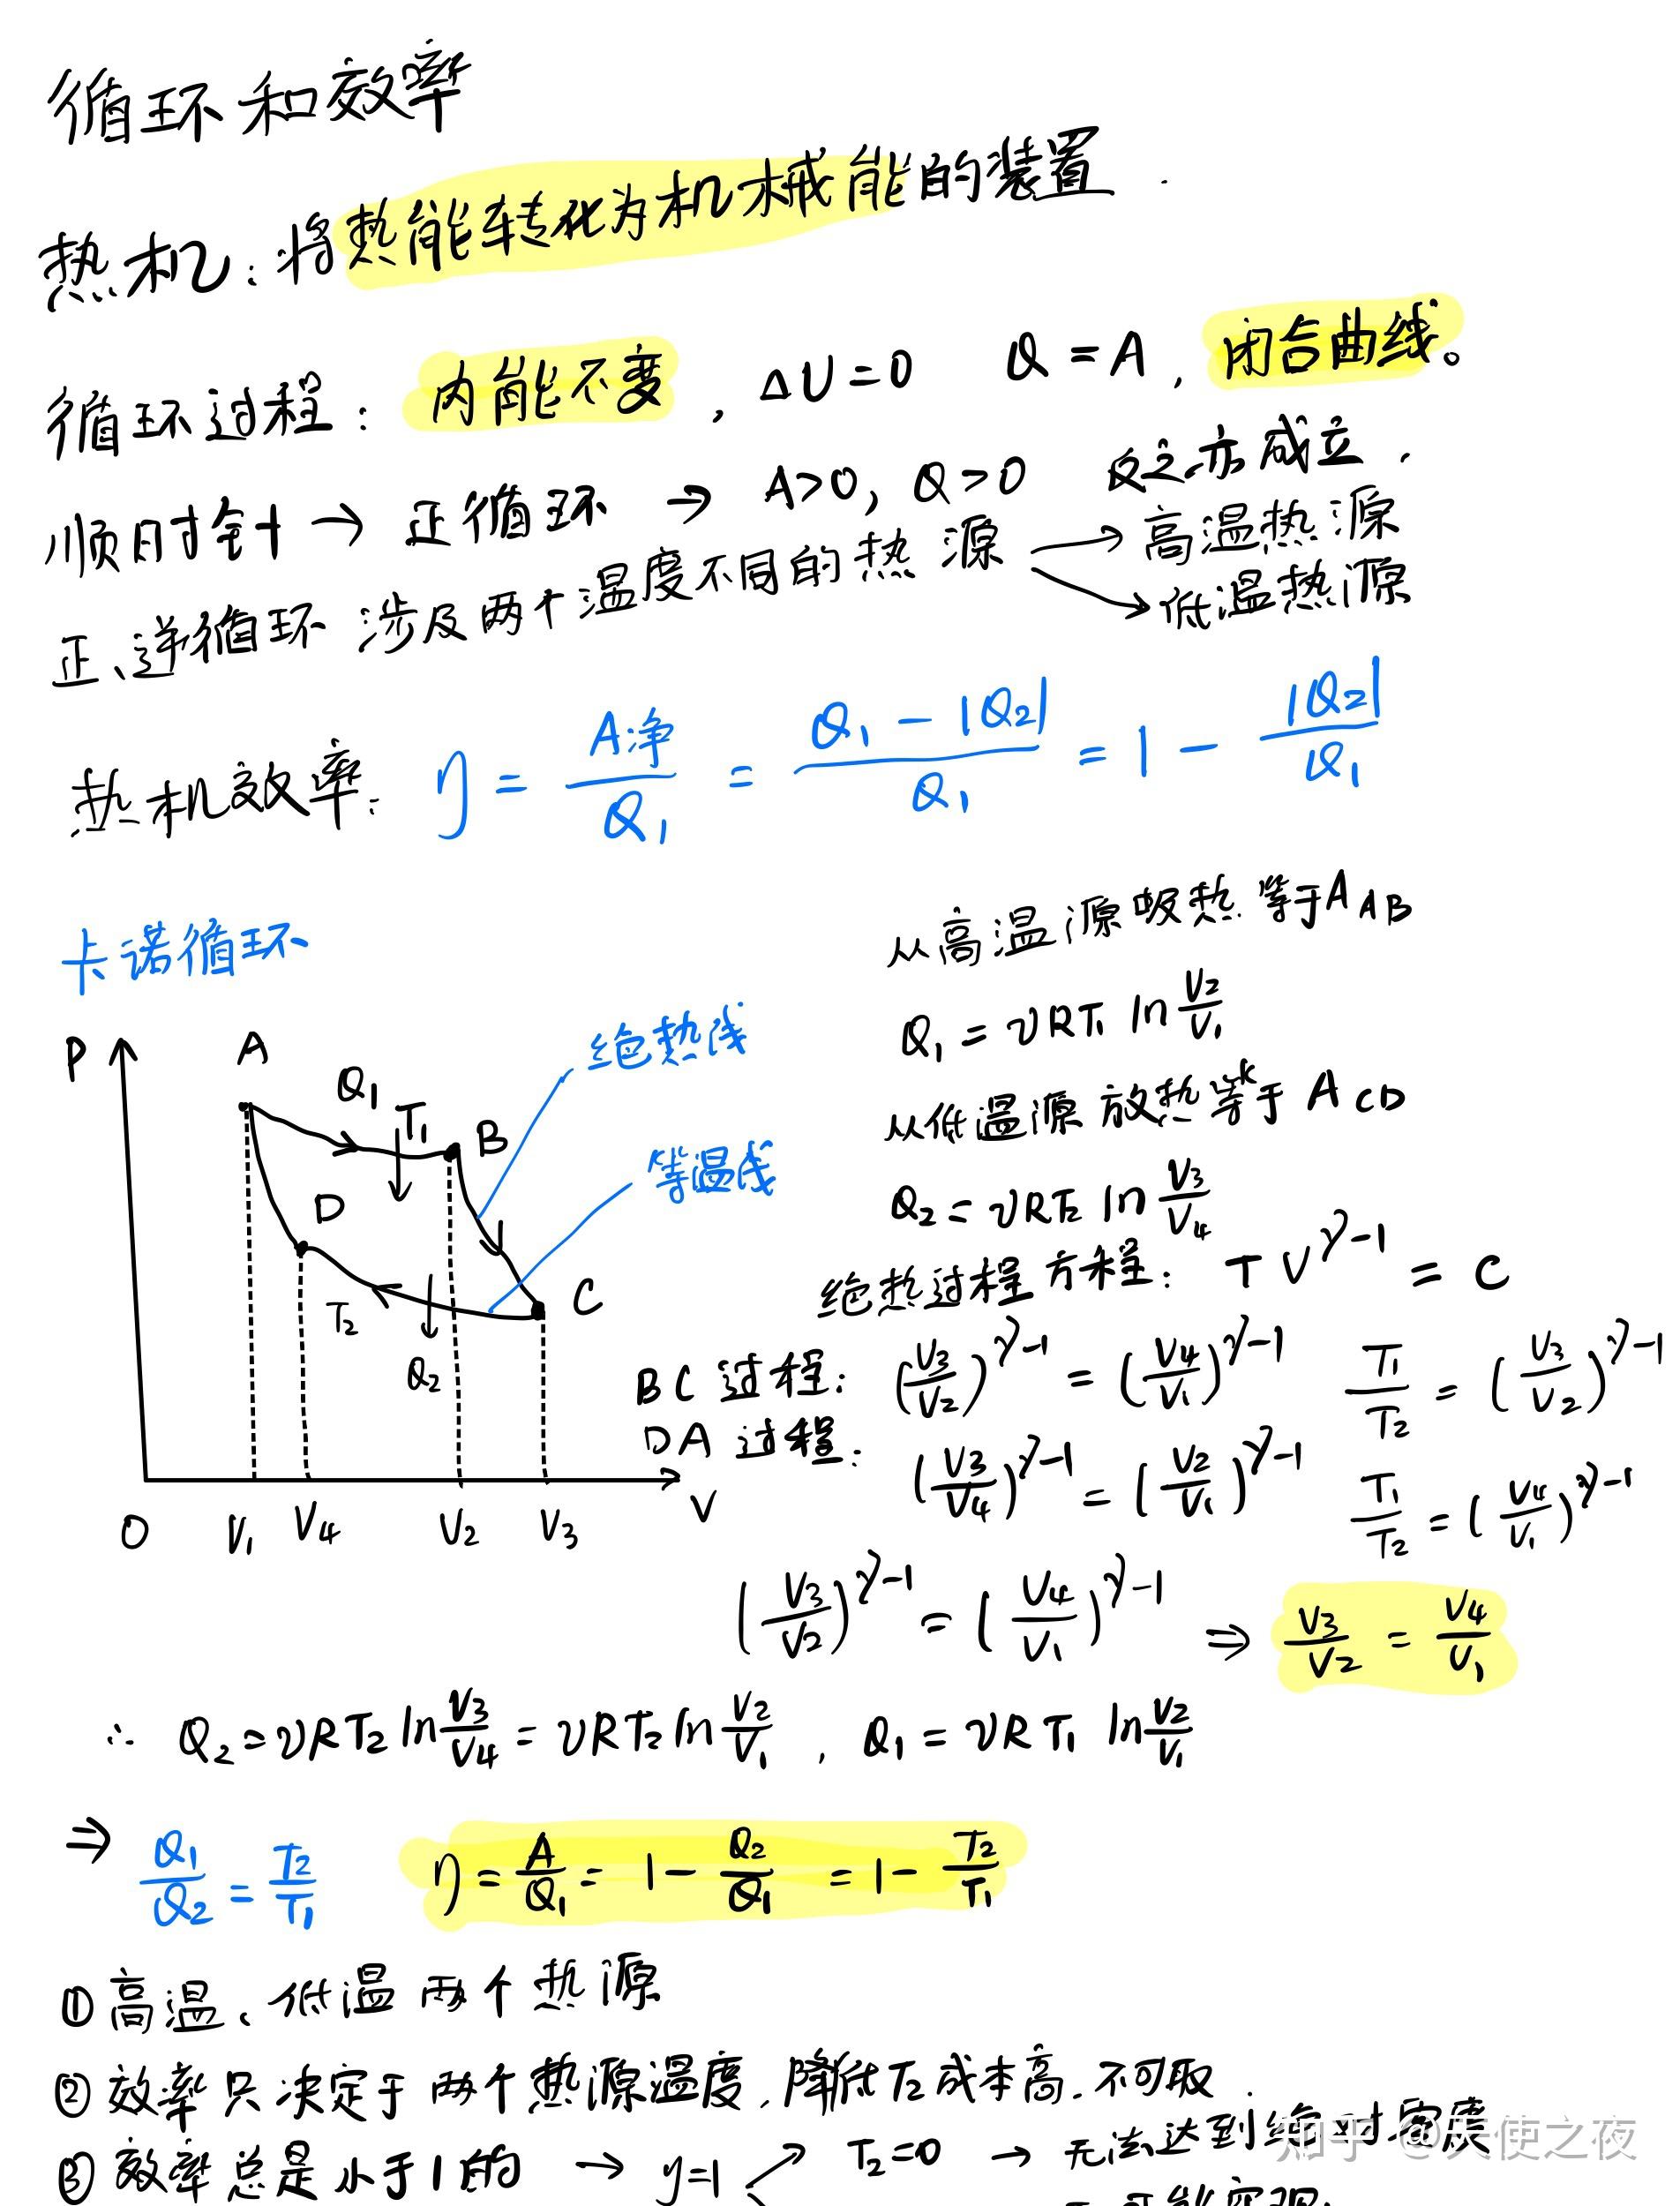 循环和效率
热机：将热能转化为机械能的装置.
循环过程：内能不变，ΔU=0 Q=A，闭合曲线。
顺时针→正循环→A>0，Q>0 反之亦成立.
正、逆循环涉及两个温度不同的热源
→高温热源
→低温热源
热机效率： η = A净/Q₁ = (Q₁-|Q₂|)/Q₁ = 1 - |Q₂|/Q₁
卡诺循环
P
A
Q₁
T₁
B
绝热线
等温线
D
T₂
Q₂
C
O V₁ V₄ V₂ V₃ V
从高温源吸热等于A_AB
Q₁ = νRT₁ ln V₂/V₁
从低温源放热等于A_CD
Q₂ = νRT₂ ln V₃/V₄
绝热过程方程： TV^(γ-1) = C
BC过程： (V₃/V₂)^(γ-1) = (V₄/V₁)^(γ-1) T₁/T₂ = (V₃/V₂)^(γ-1)
DA过程： (V₃/V₄)^(γ-1) = (V₂/V₁)^(γ-1) T₁/T₂ = (V₄/V₁)^(γ-1)
(V₃/V₂)^(γ-1) = (V₄/V₁)^(γ-1) ⇒ V₃/V₂ = V₄/V₁
∴ Q₂=νRT₂ ln V₃/V₄ = νRT₂ ln V₂/V₁ , Q₁ = νRT₁ ln V₂/V₁
⇒ Q₁/Q₂ = T₂/T₁ η = A/Q₁ = 1 - Q₂/Q₁ = 1 - T₂/T₁
①高温、低温两个热源
②效率只决定于两个热源温度.降低T₂成本高.不可取.
③效率总是小于1的 → η=1 ↗ T₂=0 → 无法达到绝对零度
知乎 @天使之夜